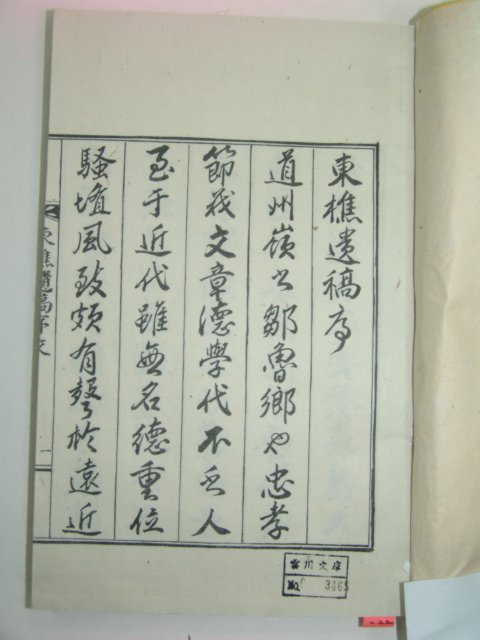 東樵遺稿序
道州嶺之鄒魯鄉也忠孝
節義文章德學代不乏人
至于近代雖無名德重位
騷壇風致頗有聲於遠近
東樵遺稿序文
一
雲川文庫
No. 3465